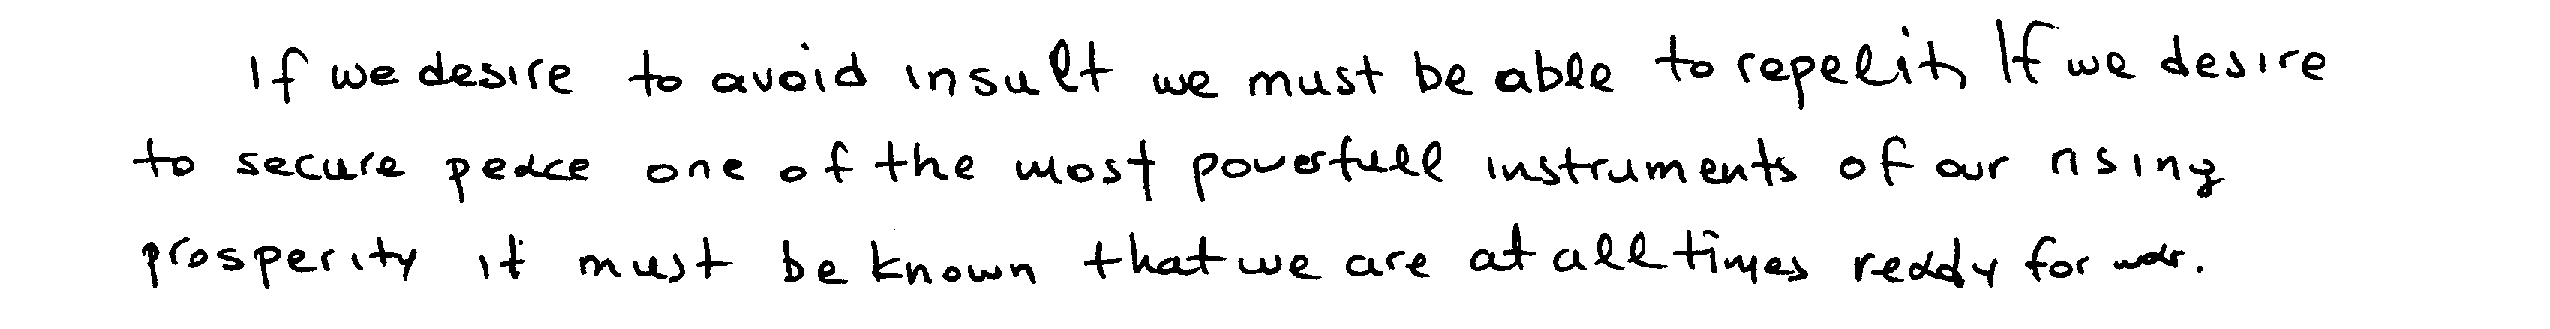 If we desire to avoid insult we must be able to repel it, If we desire
to secure peace one of the most powerfull instruments of our rising
prosperity it must be known that we are at all times ready for war.